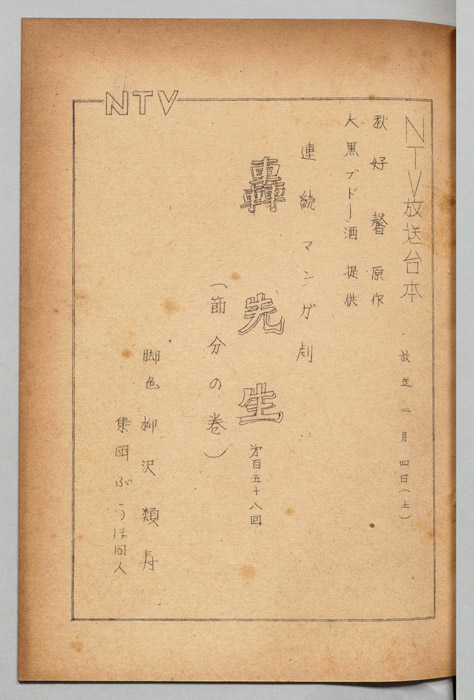 NTV
NTV放送台本
放送 二月四日(土)
秋好馨 原作
大黒ブドー酒 提供
連続マンガ劇
轟先生
第百五十八回
(節分の巻)
脚色 柳沢類寿
集団ぶうほ同人